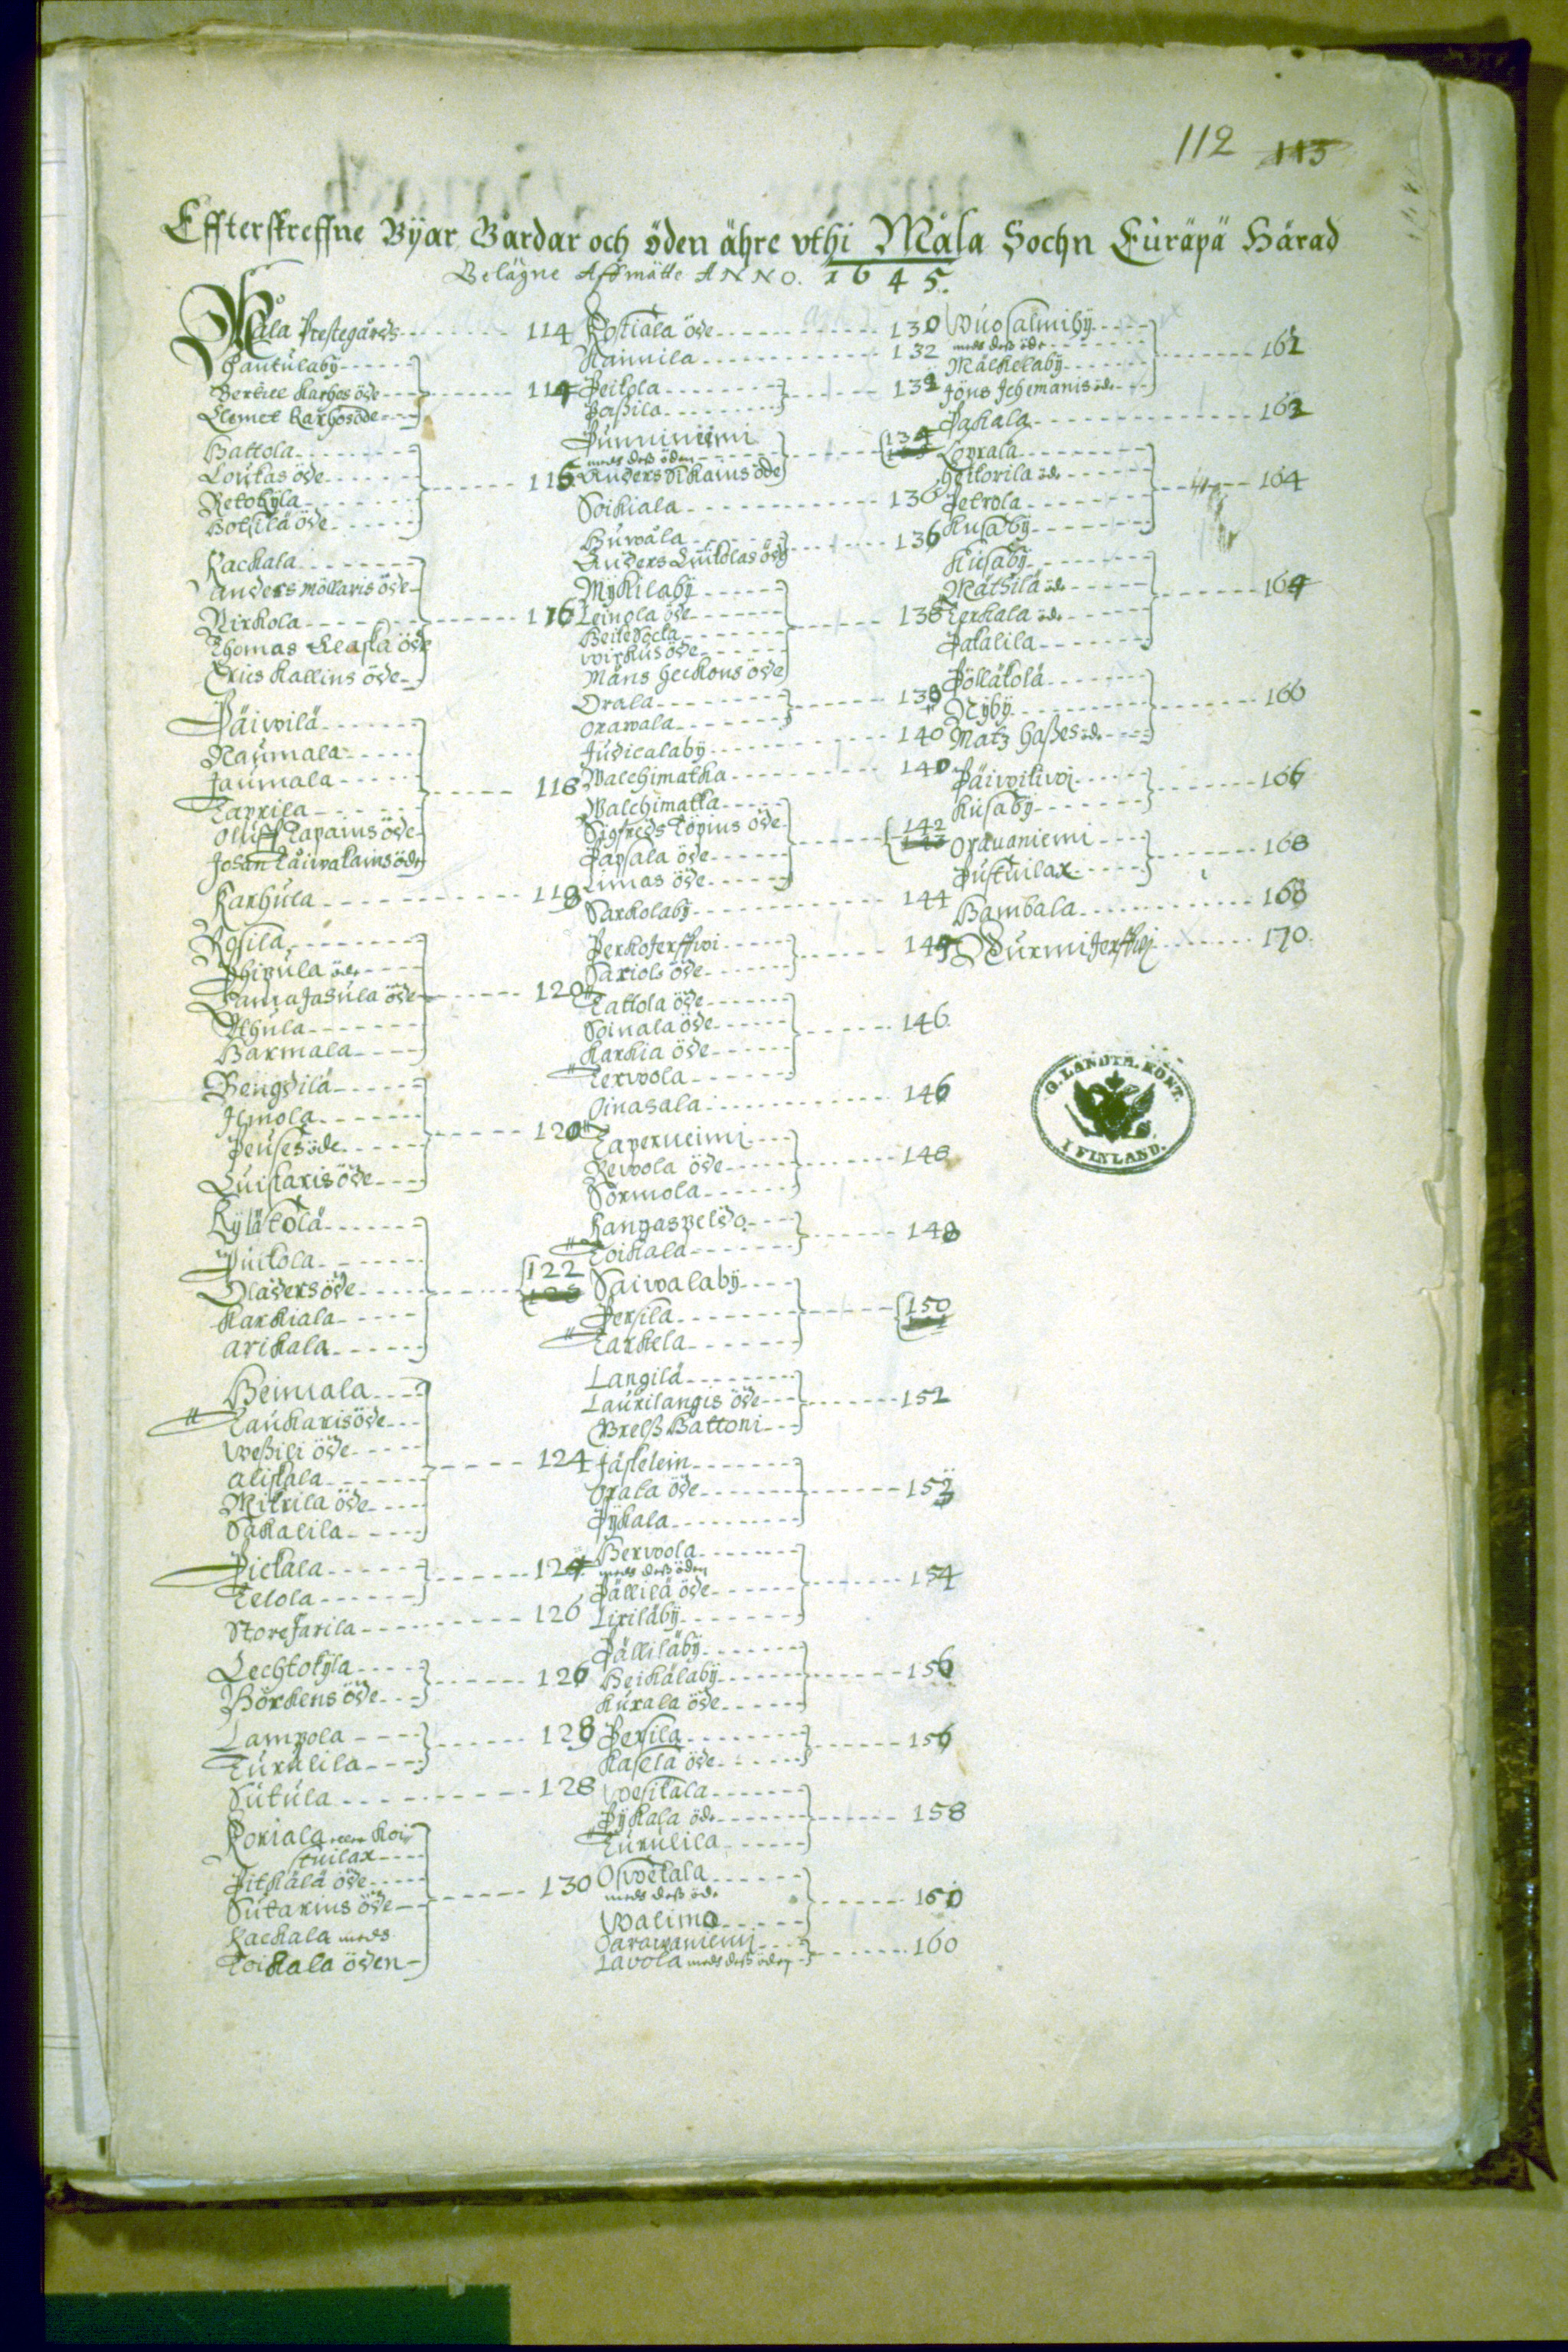 112 113
Effterskreffne Byar Gårdar och öden ähre vthi Måla Sochn Euräpä Härad
Belägne Affmätte ANNO. 1645.
Måla Prestegårds 114
Pautulaby
Bertill Karhos öde 114
Clemet Karhosöde
Hattola
Loukas öde
Retokyla 116
Botsila öde
Kackala
Anders Möllaris öde
Nirkola 116
Thomas Elaska öde
Erics Kallins öde
Päiwilä
Naumala
Jaumala
Taprila 118
Oluff Tapains öde
Johan Täiwalainsöde
Karhula 118
Rosila
Phipula öde
Pamajasula öde 120
Athula
Barmala
Bengdila
Ilmola
Peuses öde 120
Luiskaris öde
Kylätolä
Puitola
Oladers öde 122
Karkiala
Arikala
Heimala
Taukarisöde
Weßili öde
Aliskala 124
Mikrila öde
Sakalila
Pickala 124
Telola
Storejarila 126
Lechtokyla 126
Börkens öde
Lampola 128
Turalila
Sutula 128
Koriala eller Koi
tuilax
Pitkälä öde
Sutarins öde 130
Kackala meds
Toikala öden
Rostiala öde 130
Naimila 132
Peitola 132
Paßila
Punniniemi
meds deß öden 134
Anders Sikains öde
Soikiala 136
Huwala 136
Anders Luikolas öde
Mykilaby
Leinola öde
Beitesocka 138
Wirkus öde
Måns Heckons öde
Orala 138
Orawala
Judicalaby 140
Walchimatka 140
Walchimatka
Sigfreds Töpins öde 142
Papsala öde
Limas öde
Sarkolaby 144
Perkojerffwi 144
Sariols öde
Tattola öde
Soinala öde
Karkia öde 146
Terwola
Oinasala 146
Taperneimi
Rewola öde 148
Sormola
Kangaspeldo 148
Toikala
Saiwalaby
Persila 150
Tarkela
Langila
Laurilangis öde 152
Brelß Battoni
Jäskelein
Orala öde 152
Pykala
Herwola
meds deß öden
Pällilä öde 154
Liriläby
Pälliläby
Beikälaby 156
Kurala öde
Persila 156
Kasela öde
Wesikala
Pykala öde 158
Turulila
Oswekala
meds deß öde 160
Walima
Oarawaniemj
Lavola meds deß öden 160
Wuosalmiby
meds deß öde
Mälkeläby 162
Jöns Ichemanis öde
Pakala 162
Loprala
Heikorila öde
Petrola 164
Kusaby
Kusaby
Mathila öde
Terkala öde 164
Pakalila
Pöllätolä
Nyby 166
Matz Haßes öde
Päiwikiwi 166
Kusaby
Orauaniemi 168
Pustuilax
Bambala 168
Wurmijerffwj 170
G. LANDTM. KONT.
I FINLAND.